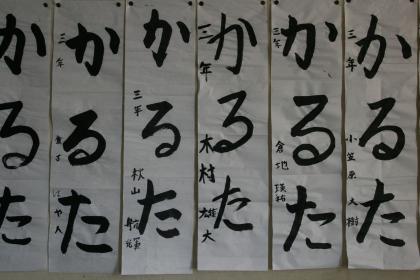 かるた
三年
かるた
三年
かるた
三年
秋山
かるた
三年
木村 雄大
かるた
三年
倉地 瑛祐
かるた
三年
小笠原 大樹